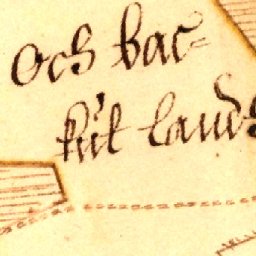 och bac=
kiit land